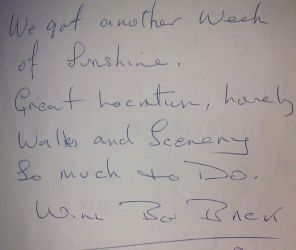 We got another Week
of Sunshine.
Great Location, lovely
Walks and Scenery
So much to Do.
Will Be Back